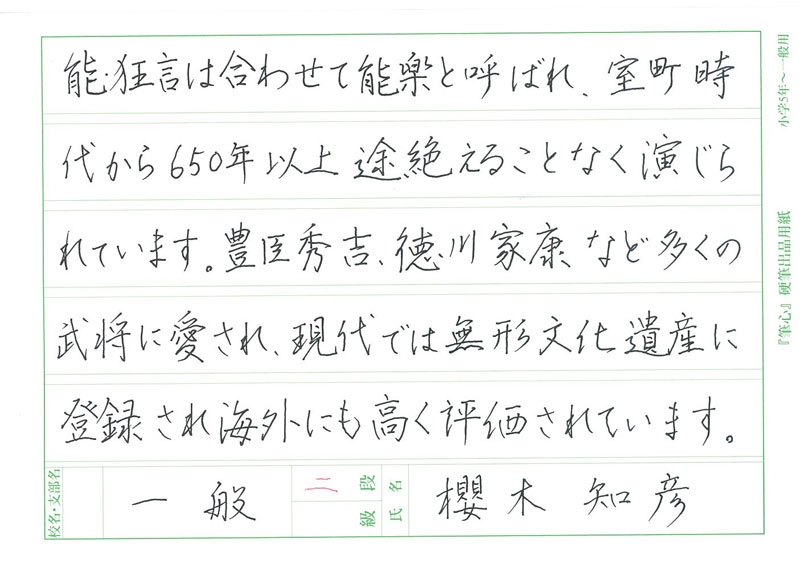 能・狂言は合わせて能楽と呼ばれ、室町時
代から650年以上途絶えることなく演じら
れています。豊臣秀吉、徳川家康など多くの
武将に愛され、現代では無形文化遺産に
登録され海外にも高く評価されています。
校名・支部名 一般 二 段 級 氏名 櫻木 知彦
小学5年～一般用
『筆心』硬筆出品用紙